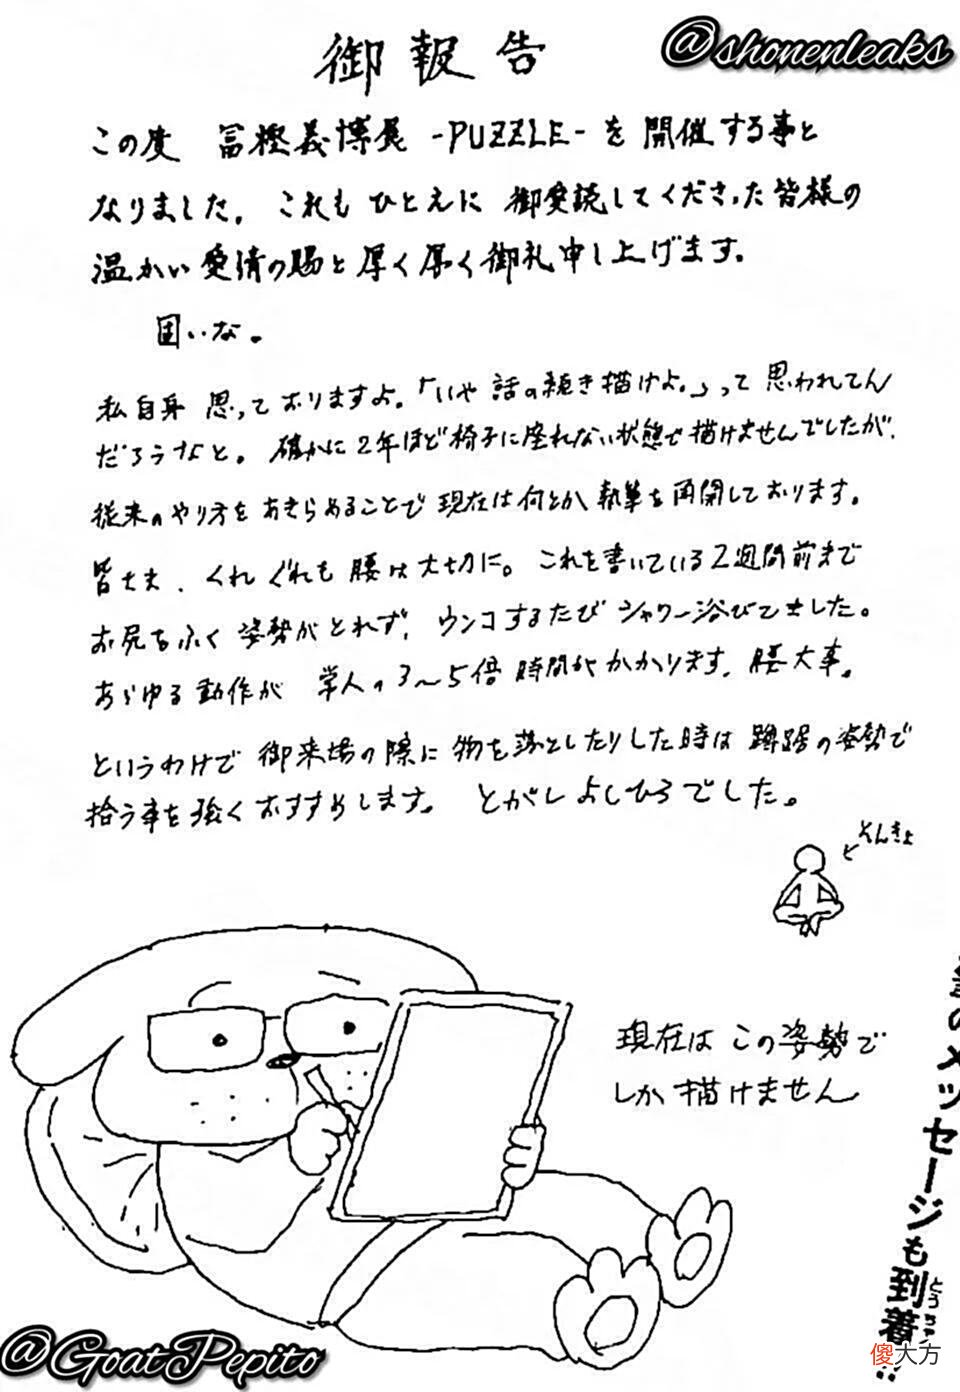 @shonenleaks
御報告
この度 冨樫義博展 -PUZZLE- を開催する事と
なりました。これもひとえに御愛読してくださった皆様の
温かい愛情の賜と厚く厚く御礼申し上げます。
固いな。
私自身思っておりますよ。「いや話の続き描けよ。」って思われてん
だろうなと。確かに2年ほど椅子に座れない状態で描けませんでしたが、
従来のやり方をあきらめることで現在は何とか執筆を再開しております。
皆さま、くれぐれも腰は大切に。これを書いている2週間前まで
お尻をふく姿勢がとれず、ウンコするたびシャワー浴びてました。
あらゆる動作が 常人の3〜5倍時間がかかります。腰大事。
というわけで御来場の際に物を落としたりした時は蹲踞の姿勢で
拾う事を強くおすすめします。 とがしよしひろでした。
そんきょ
現在はこの姿勢で
しか描けません
のメッセージも到着
とうちゃく
@GoatPepito
傻大方